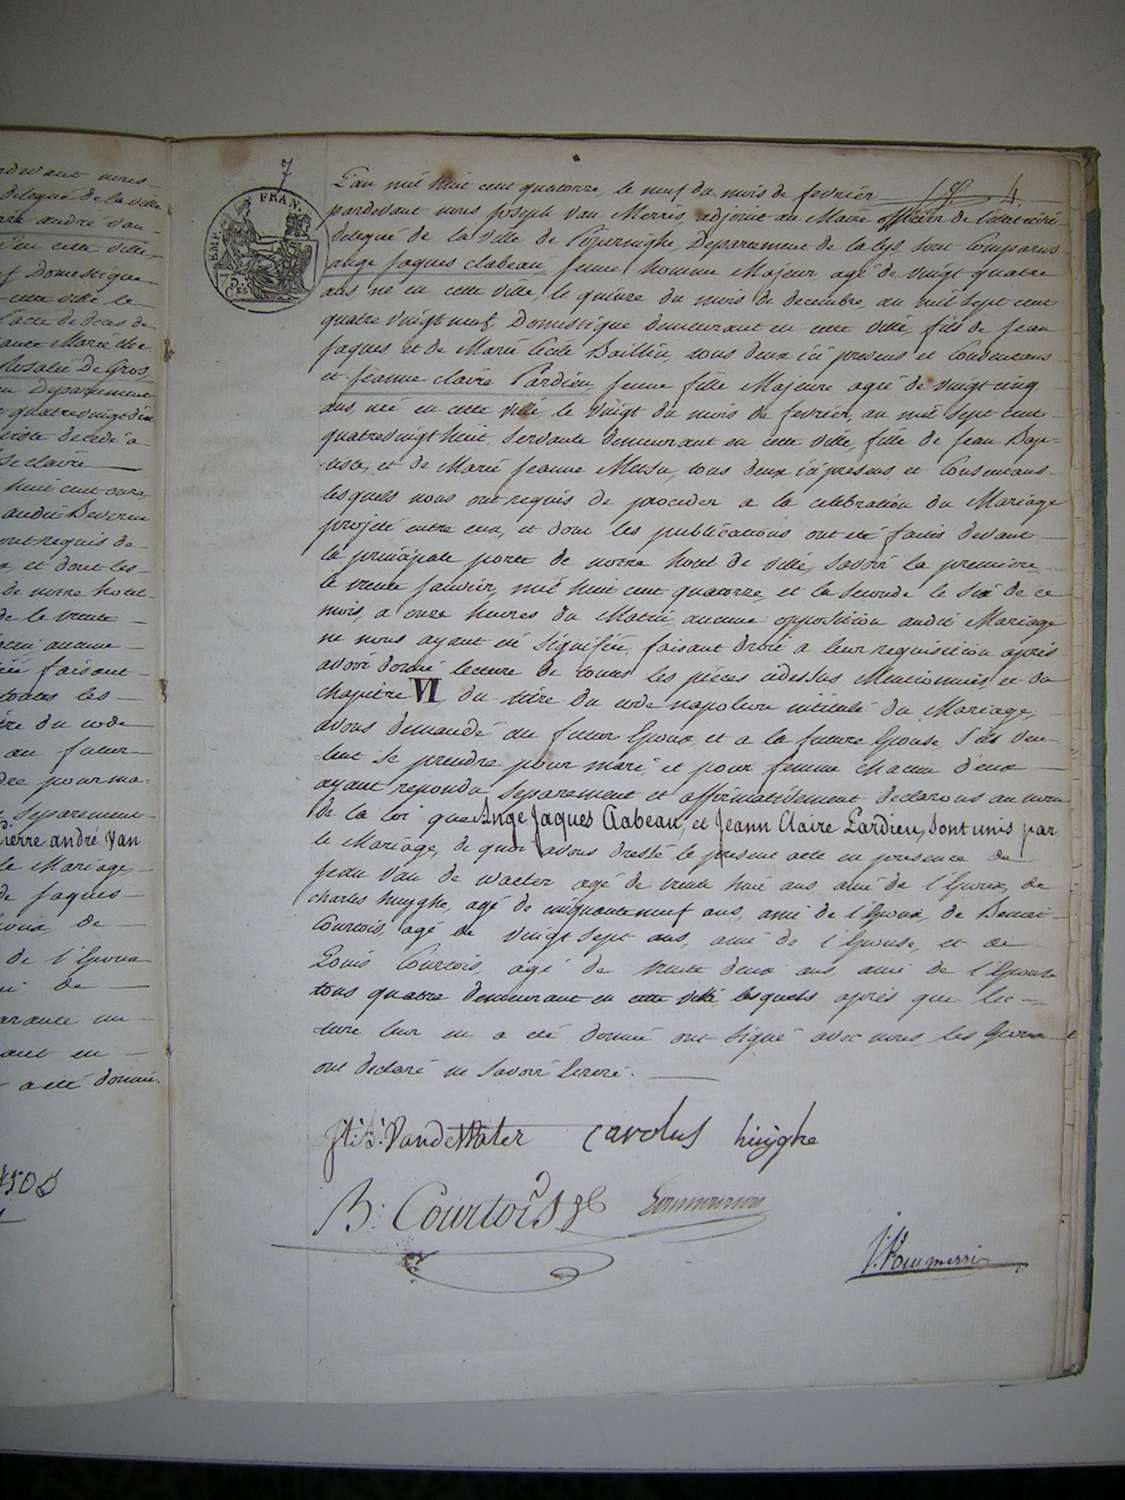 rdevant nous
delegué de la ville
andré van
en cette ville
Domestique
cette ville le
l'acte de deces de
Rosalie De Gros
Departement
quatrevingt dix
decedé a
claire
huit cent onze
ont requis de
et dont les
de notre hotel
de le trente
aucune
faisant
toutes les
du code
au futur
pour ma
separement
Pierre andré Van
le Mariage
de Jaques
de
de l'Epoux
de
quarante un
en
a été donné
7
EMP. FRAN.
75 Ces
L'an mil huit cent quatorze, le neuf du mois de fevrier 4.
pardevant nous Joseph Van Merris, adjoint au Maire officier de l'etat civil
delegué de la ville de Poperinghe, Departement de la Lys, sont Comparus
ange Jaques Clabeau, jeune homme Majeur, agé de vingt quatre
ans né en cette ville, le quinze du mois de decembre, an mil sept cent
quatre vingt neuf, Domestique demeurant en cette ville, fils de Jean
Jaques et de Marie Cecile Baillieu, tous deux ici presens et Consentans
et Jeanne Claire Lardieu, jeune fille Majeure agée de vingt cinq
ans, née en cette ville le vingt du mois de fevrier, an mil sept cent
quatrevingt huit, Servante demeurant en cette ville, fille de Jean Bap-
tiste, et de Marie Jeanne Mersu, tous deux ici presens et Consentans
lesquels nous ont requis de proceder a la celebration du Mariage
projeté entre eux, et dont les publications ont été faites devant
la principale porte de notre hotel de ville, Savoir la premiere
le trente Janvier, mil huit cent quatorze, et la seconde le Six de ce
mois, a onze heures du Matin, aucune opposition audit Mariage
ne nous ayant été signifiée, faisant droit a leur requisition après
avoir donné lecture de toutes les pièces cidessus Mentionnées, et du
chapitre VI, du titre du code napoleon intitulé du Mariage,
avons demandé au futur Epoux, et a la future Epouse, s'ils veu-
lent se prendre pour mari, et pour femme chacun deux
ayant repondu separement et affirmativement declarons au nom
de la loi que Ange Jaques Clabeau, et Jeann Claire Lardieu, sont unis par
le Mariage, de quoi avons dressé le present acte en presence de
Jean Van de Water, agé de trente huit ans, ami de l'Epoux, de
Charles huyghe, agé de cinquante neuf ans, ami de l'Epoux, de Benoit
Courtois, agé de vingt sept ans, ami de l'Epouse, et de
Louis Courtois, agé de trente deux ans, ami de l'Epouse
tous quatre demeurant en cette ville lesquels après que lec-
ture leur en a été donné ont signé avec nous, les Epoux
ont declaré ne savoir Ecrire.
VandeWater Carolus huyghe
B: Courtois
J. Van merris